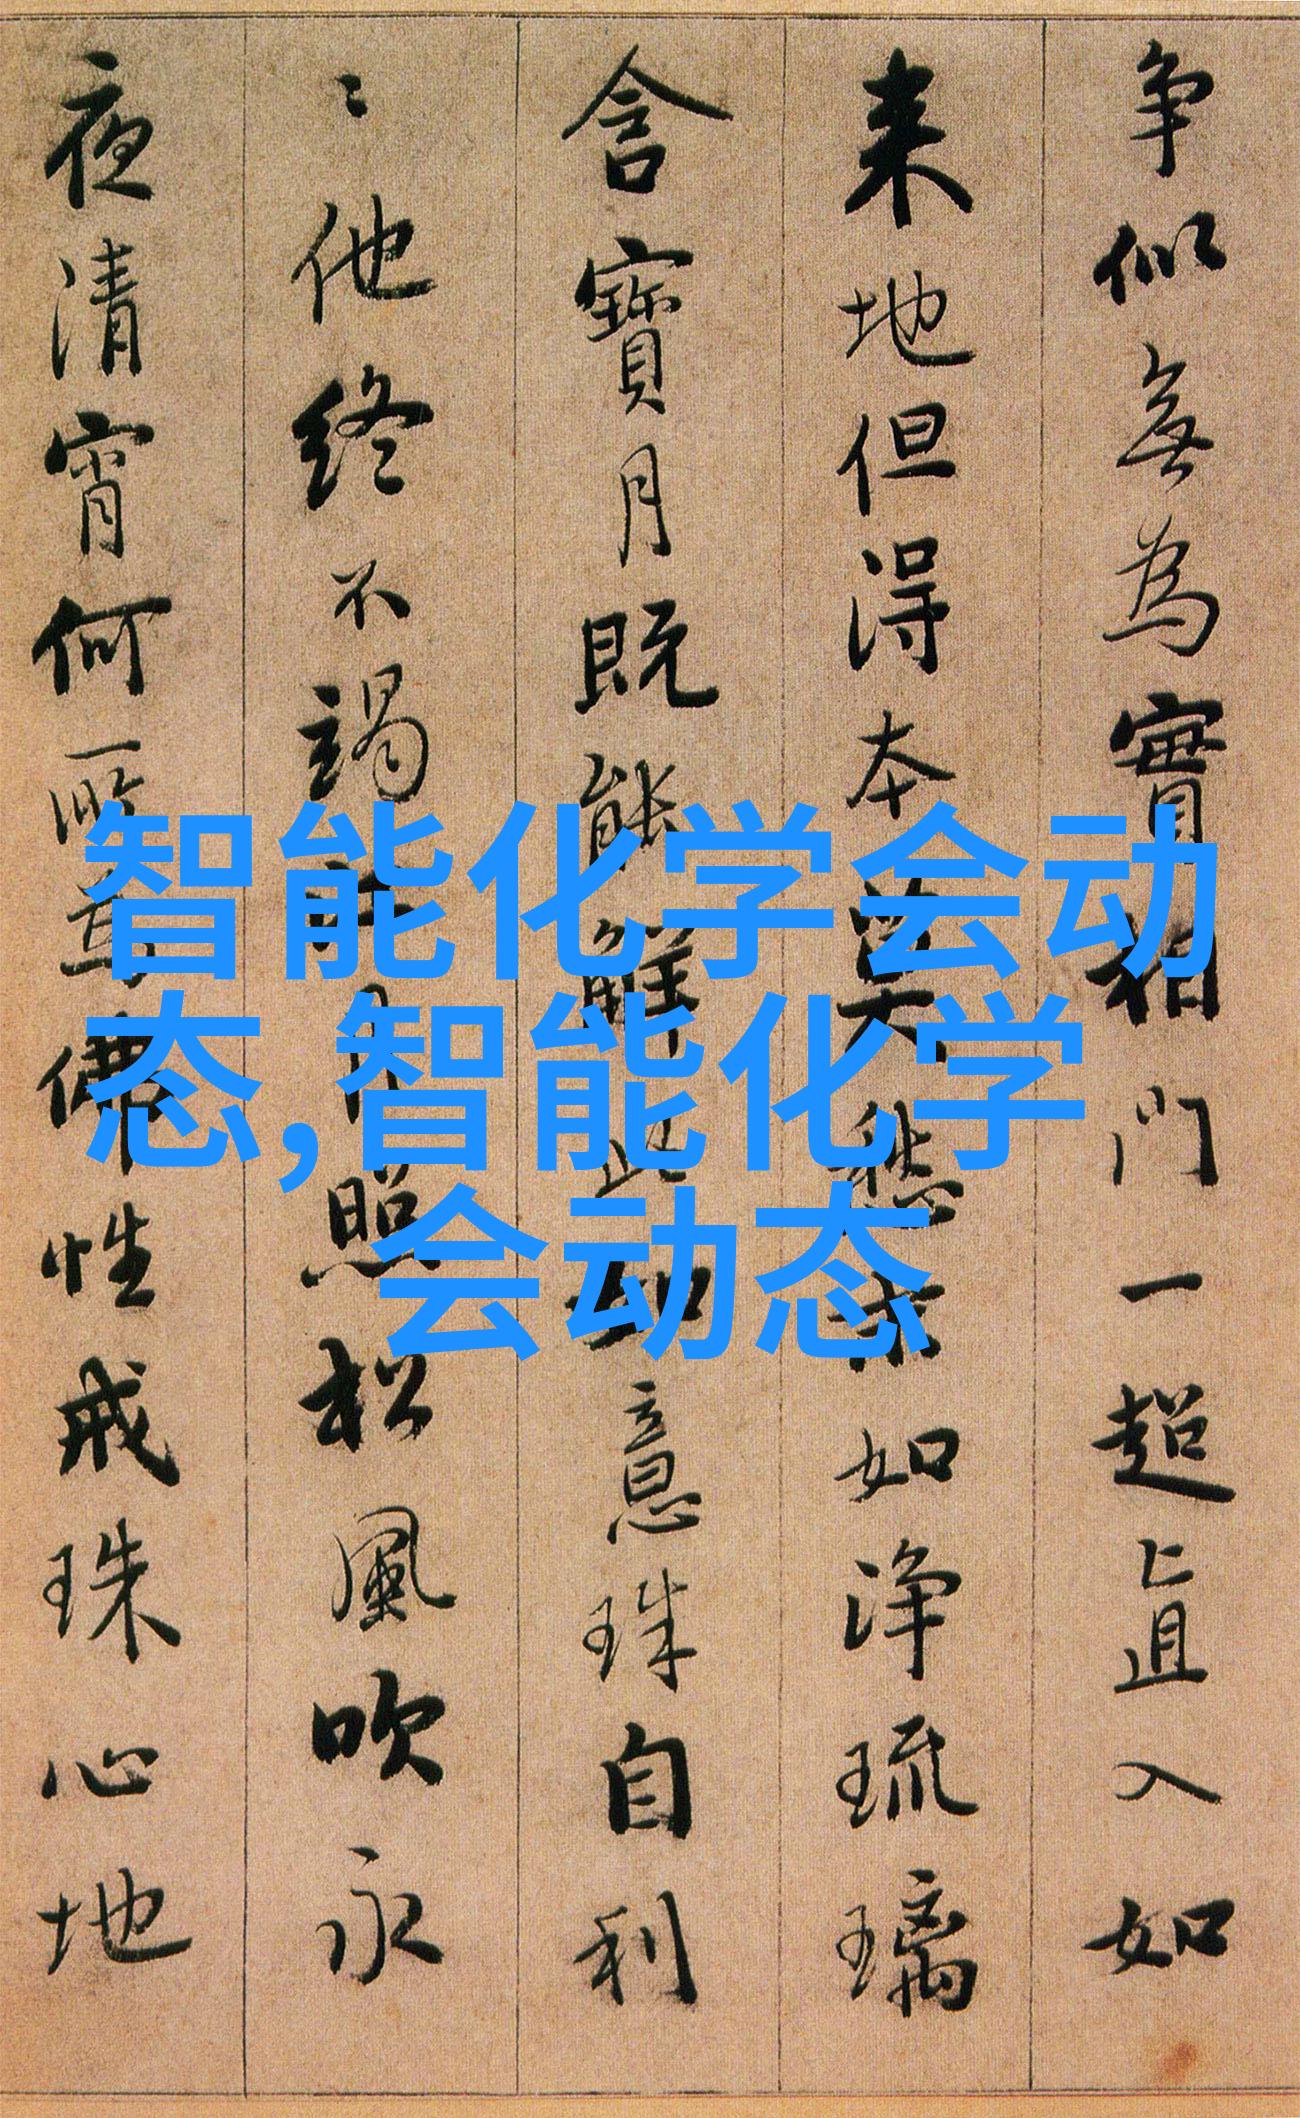 争似無為實相門一超直入如
来地但得本莫愁末如淨琉璃
含寶月既能解此如意珠自利
〻他終不竭江月照松風吹永
夜清宵何所為佛性戒珠心地
智能化学会动
态,智能化学
会动态